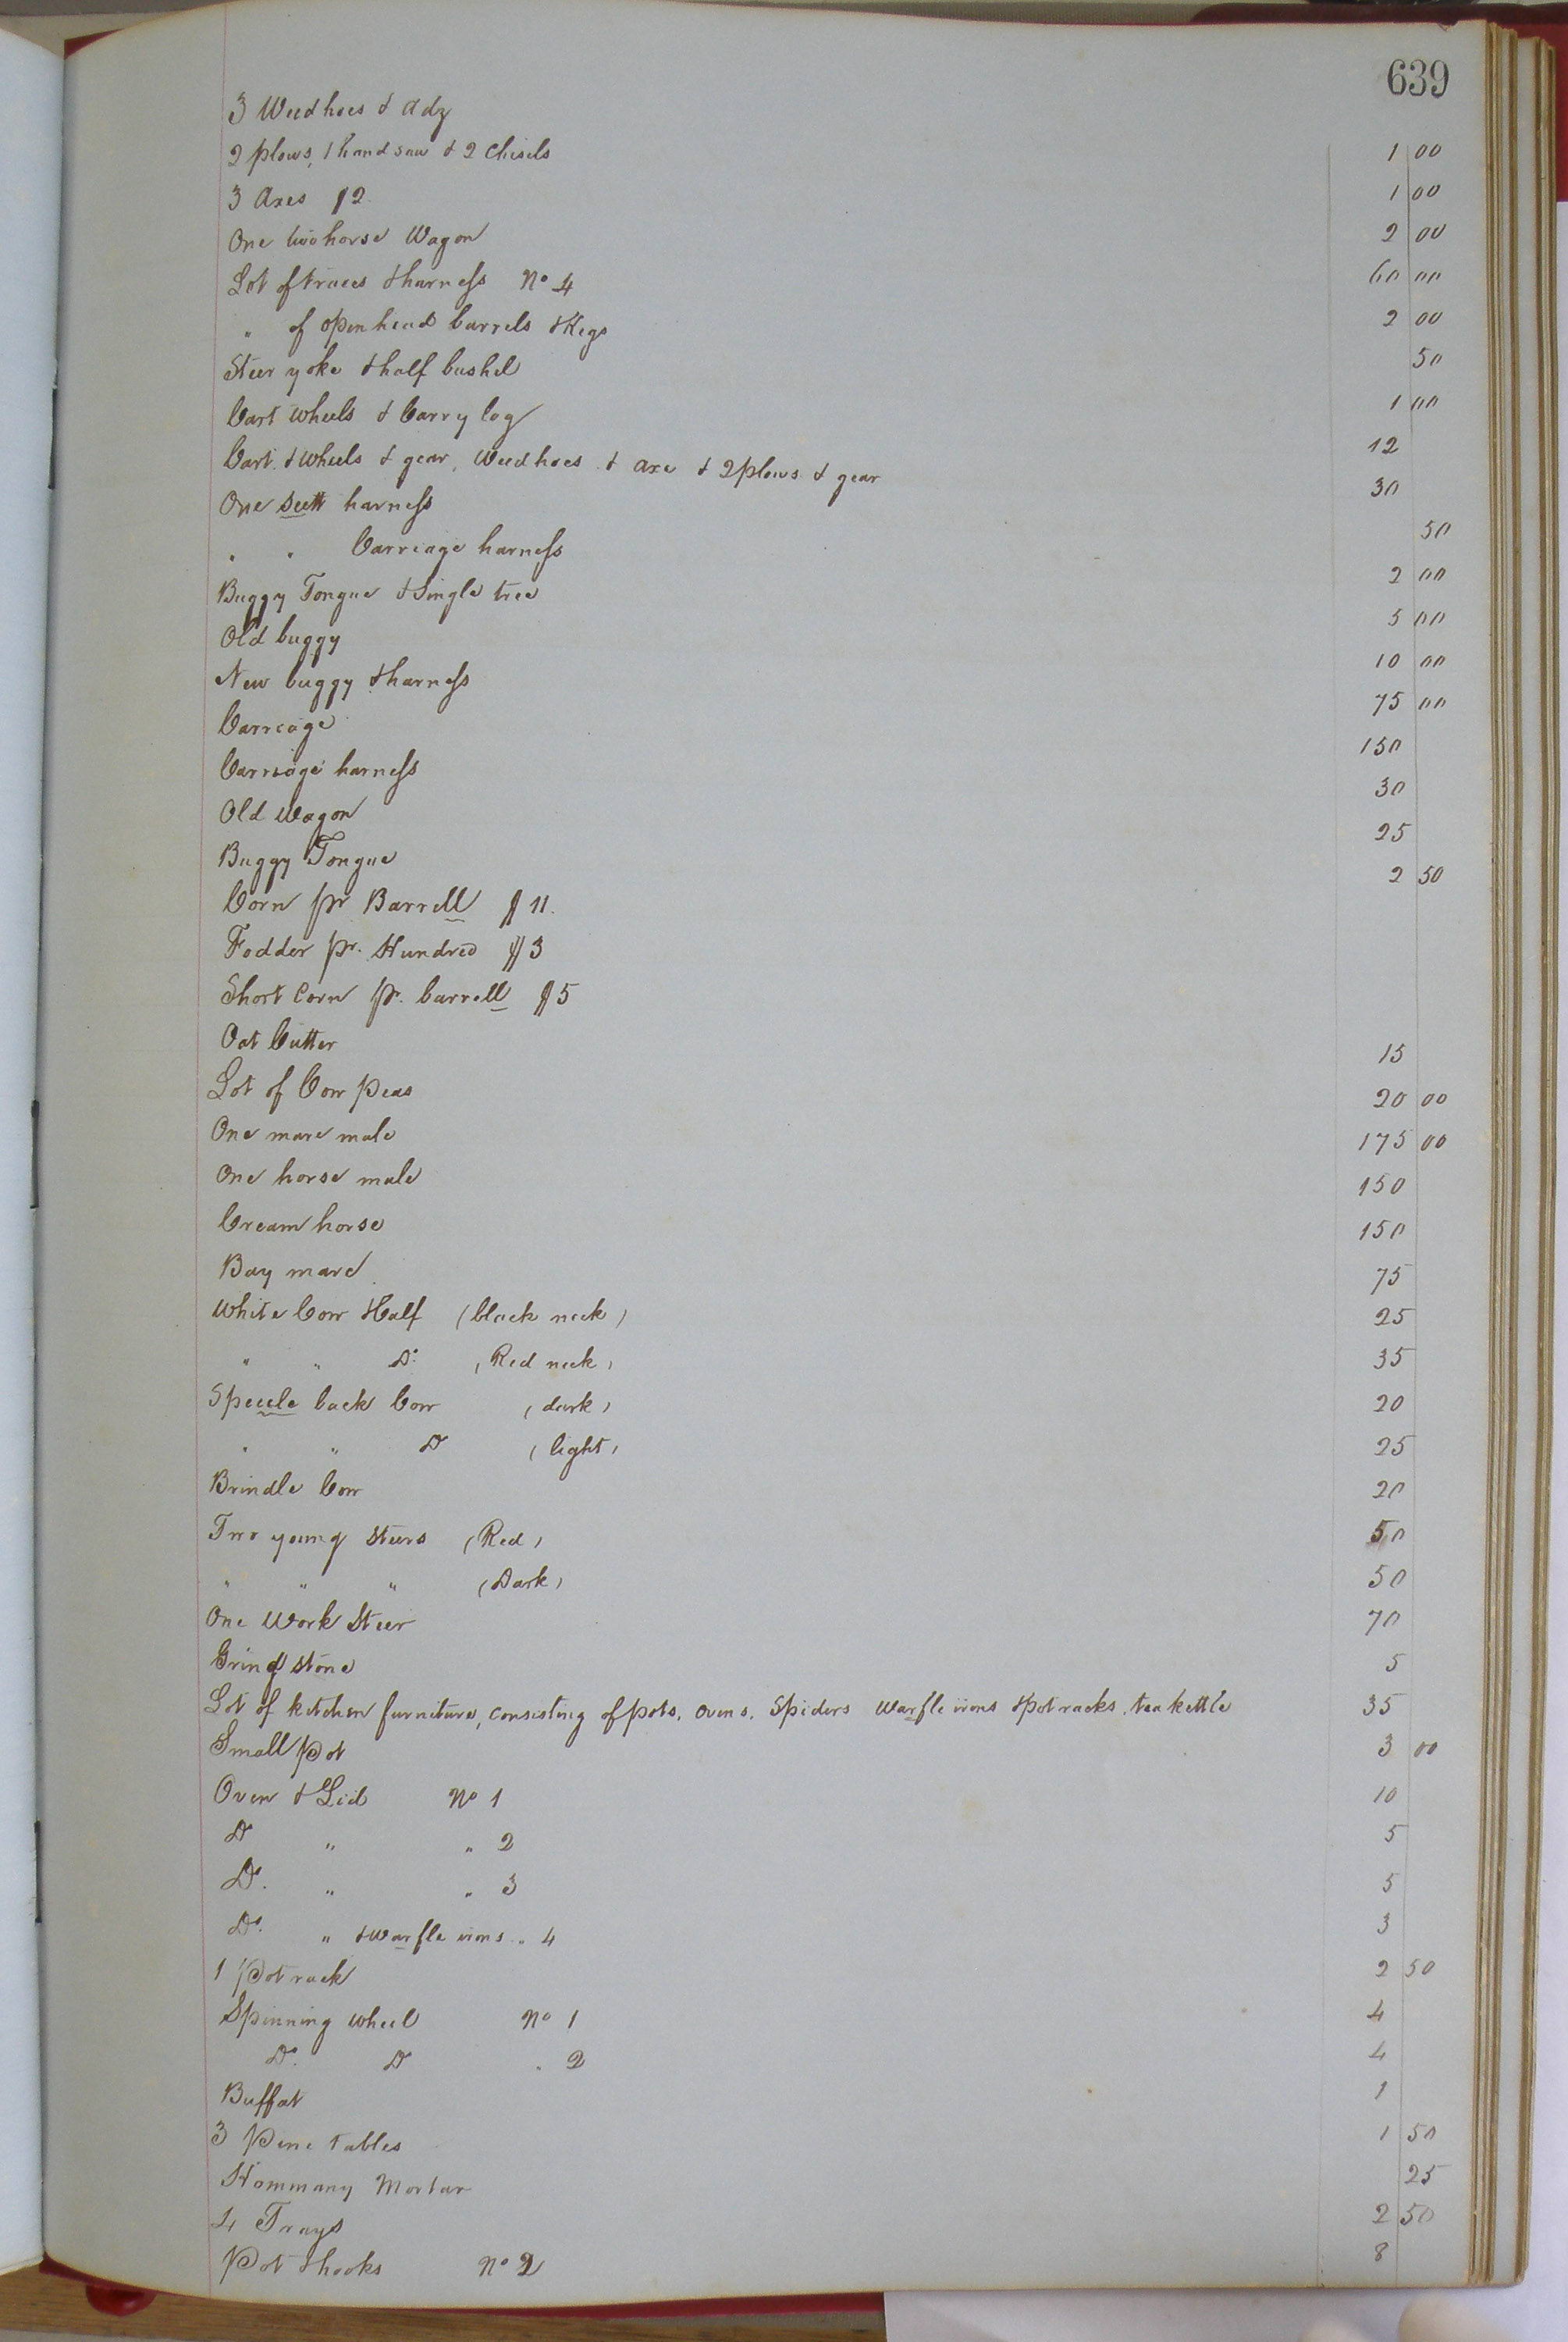 639
3 Weedhoes & adz 1 00
2 plows, 1 handsaw & 2 Chisels 1 00
3 Axes $2. 2 00
One two horse Wagon 60 00
Lot of traces & harness No 4 2 00
" of open head barrels & Kegs 50
Steer yoke & half bushel 1 00
Cart wheels & Carry log 12
Cart & wheels & gear, Weedhoes & axe & 2 plows & gear 30
One sett harness 50
" " Carriage harness 2 00
Buggy Tongue & Single tree 5 00
Old buggy 10 00
New buggy & harness 75 00
Carriage 150
Carriage harness 30
Old Wagon 25
Buggy Tongue 2 50
Corn pr Barrell $11.
Fodder pr. Hundred $3
Short Corn pr. barrell $5
Oat Cutter 15
Lot of Cow Peas 20 00
One mare mule 175 00
One horse mule 150
Cream horse 150
Bay mare 75
White Cow & Calf (black neck) 25
" " Do (Red neck) 35
Speccle back Cow (dark) 20
" " Do (light) 25
Brindle Cow 20
Two young steers (Red) 50
" " " (Dark) 50
One Work Steer 70
Grind stone 5
Lot of kitchen furniture, consisting of pots, ovens, Spiders Warfle irons & pot racks, tea kettle 35
Small Pot 3 00
Oven & Lid No 1 10
Do " " 2 5
Do. " " 3 5
Do. " & Warfle irons " 4 3
1 Pot rack 2 50
Spinning wheel No 1 4
Do. Do " 2 4
Buffat 1
3 Pine tables 1 50
Hommany Mortar 25
4 Trays 2 50
Pot & hooks No 2 8